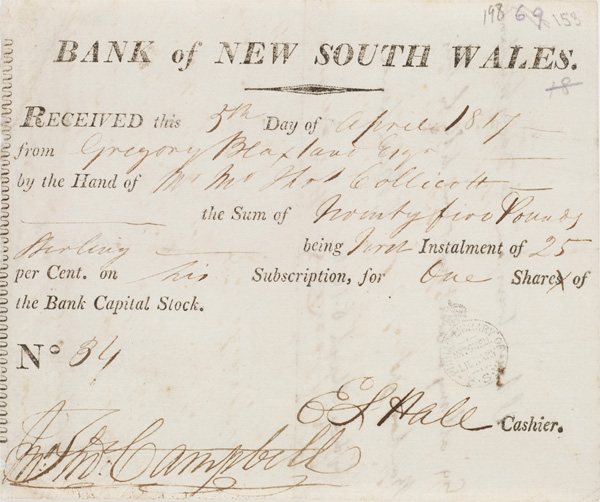 198 69 153
BANK of NEW SOUTH WALES.
18
RECEIVED this 5th Day of April 1817
from Gregory Blaxland Esqr
by the Hand of Mr Thos Collicott
the Sum of Twenty five Pounds
Sterling being First Instalment of 25
per Cent. on his Subscription, for One Shares of
the Bank Capital Stock.
No 34
E S Hall Cashier.
Jno Thos. Campbell